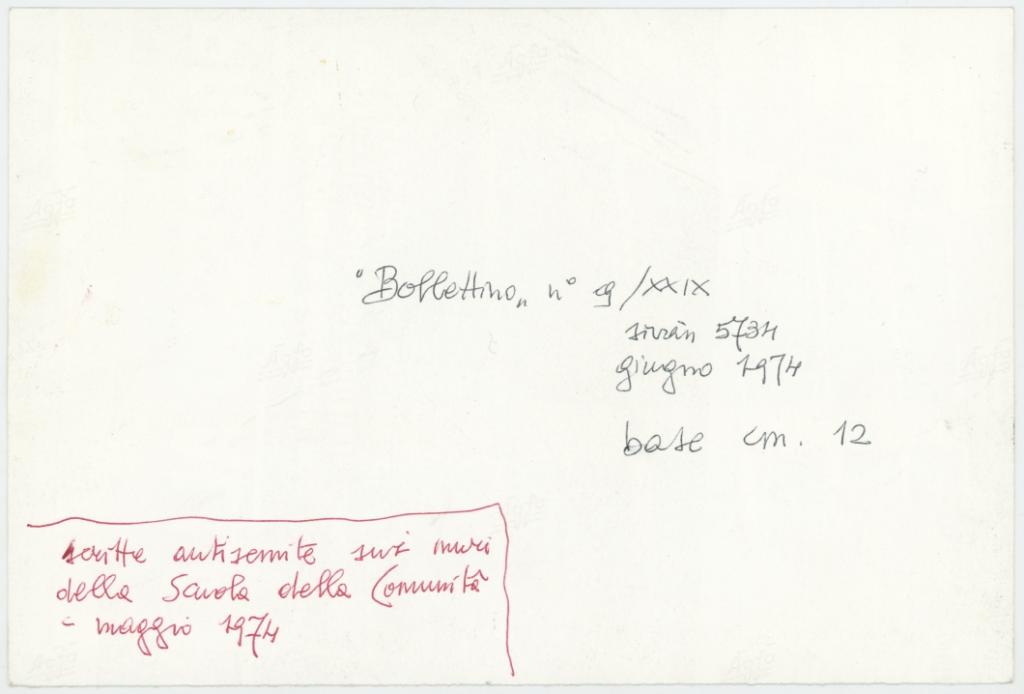 "Bollettino" n° 9/XXIX
sivàn 5734
giugno 1974
base cm. 12
scritte antisemite sui muri
della Scuola della Comunità
- maggio 1974
Agfa